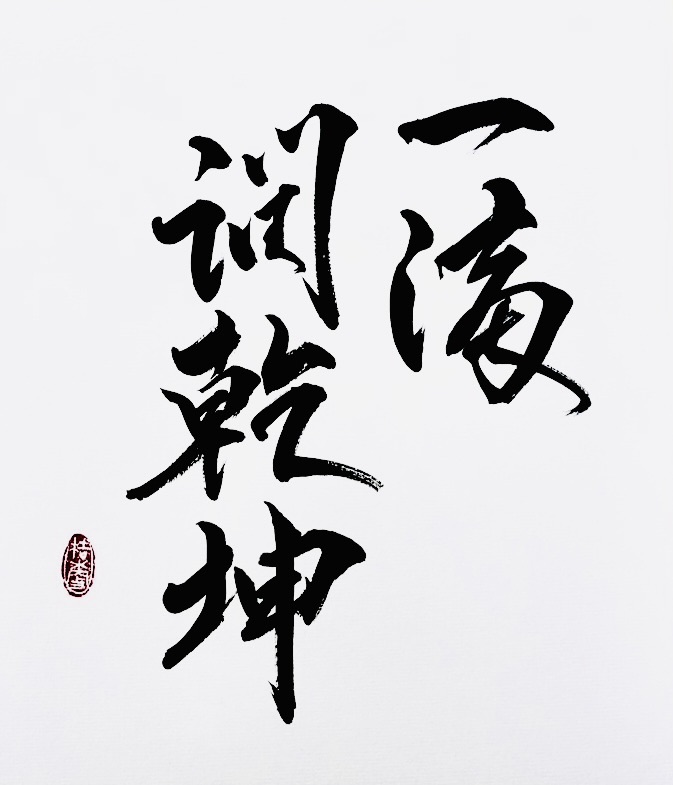 一滴
润乾坤